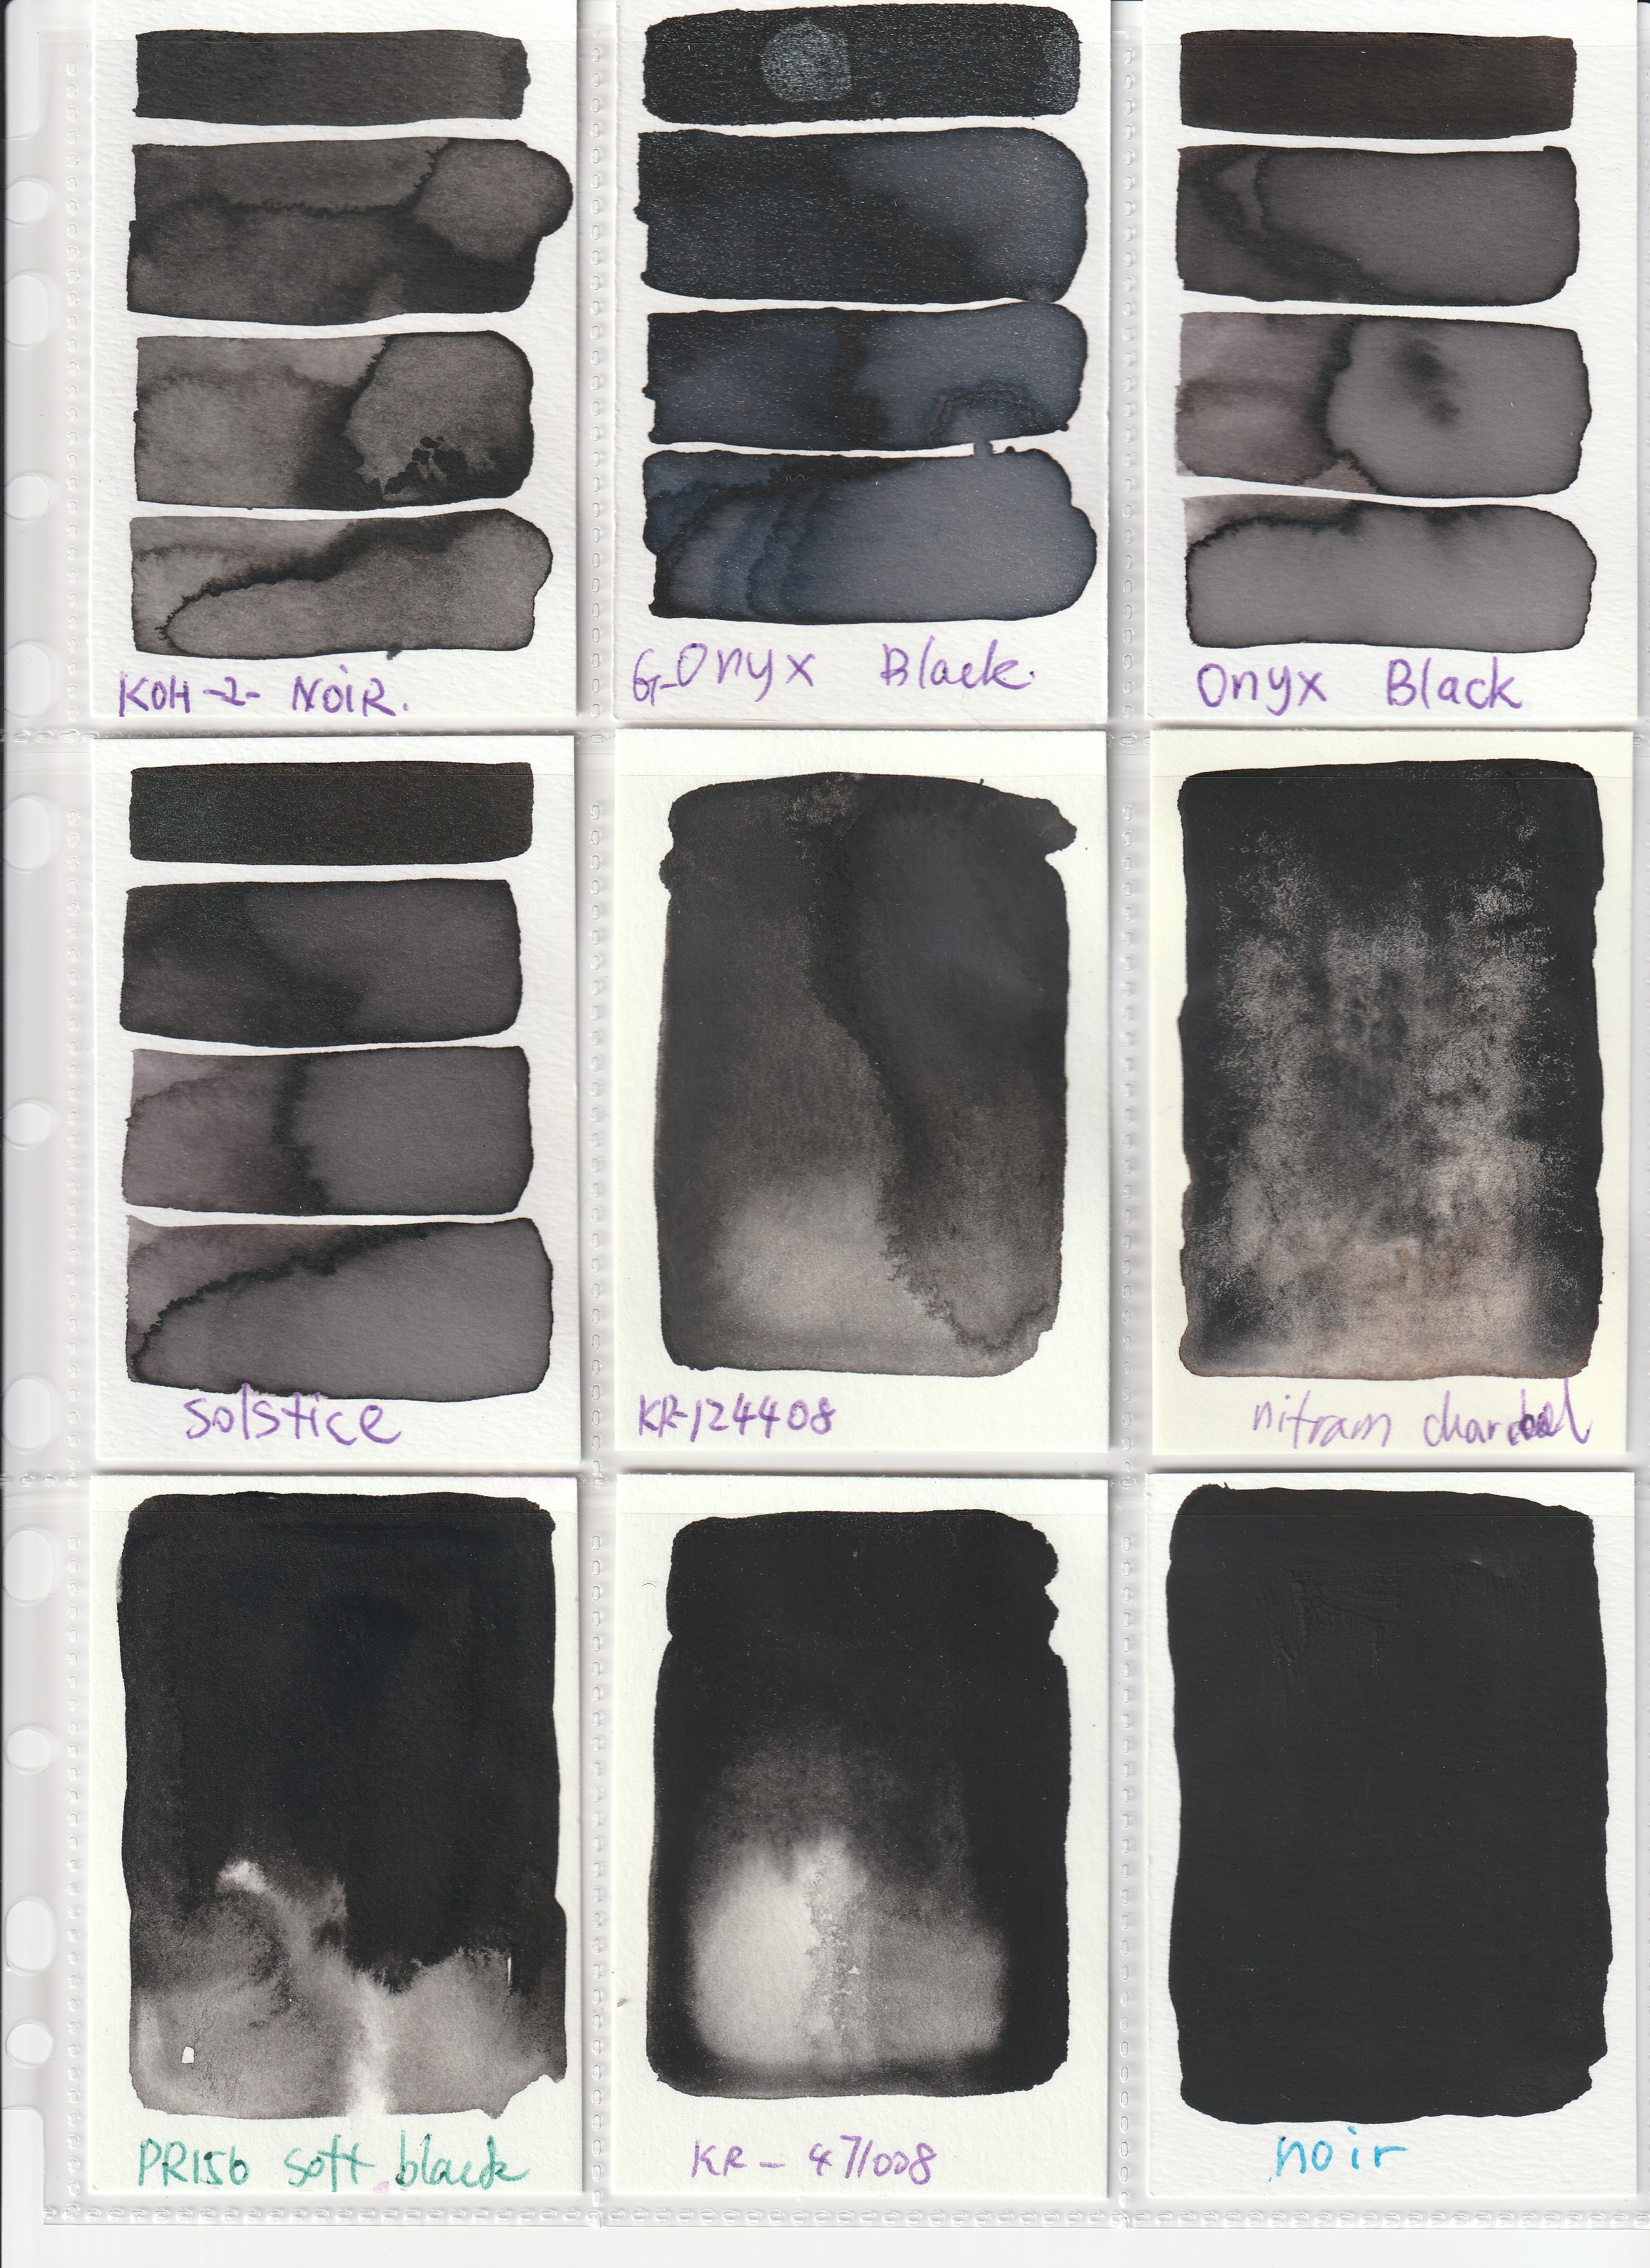 KOH-2-NOIR.
G-Onyx Black.
Onyx Black
Solstice
KR-124408
nitram charcoal
PR150 soft black
KR-471008
noir